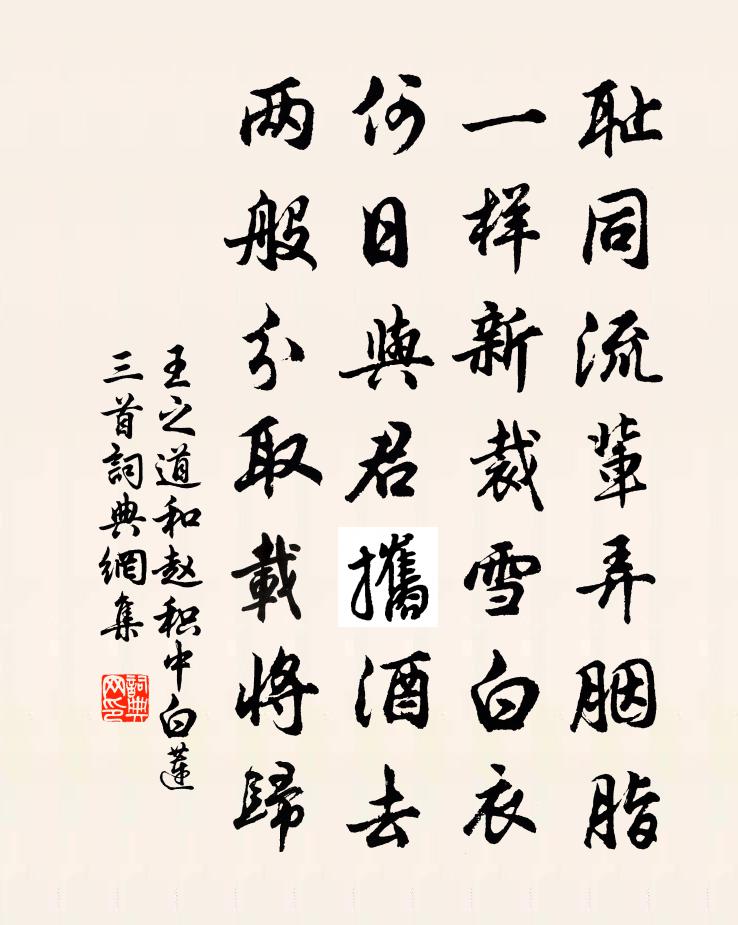 耻同流輩弄胭脂
一样新裁雪白衣
何日與君攜酒去
两般分取載將歸
王之道和赵积中白蓮
三首詞典網集
詞典
网印